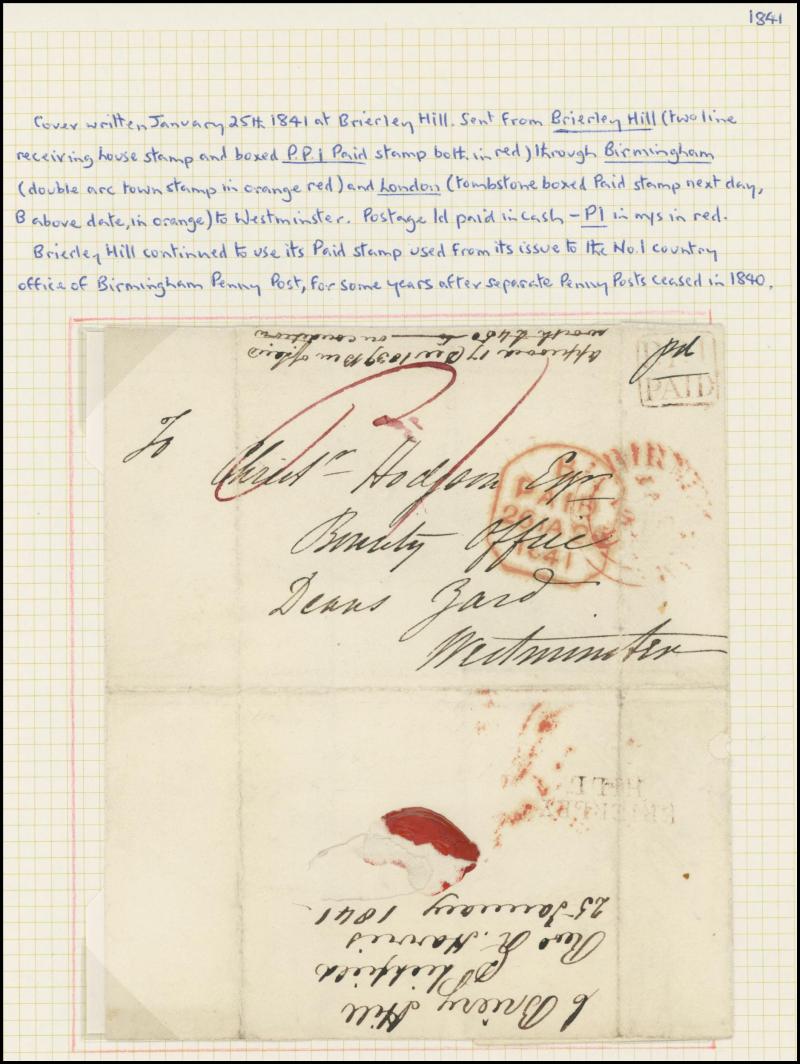 1841
Cover written January 25th 1841 at Brierley Hill. Sent from Brierley Hill (two line
receiving house stamp and boxed P.P.1 Paid stamp both in red) through Birmingham
(double arc town stamp in orange red) and London (tombstone boxed Paid stamp next day,
B above date, in orange) to Westminster. Postage 1d paid in cash – P1 in mys in red.
Brierley Hill continued to use its Paid stamp used from its issue to the No.1 country
office of Birmingham Penny Post, for some years after separate Penny Posts ceased in 1840.
pd
PAID
To
Christr Hodgson Esqr
Bounty Office
Deans Yard
Westminster
PAID
1841
BRIERLEY
HILL
Briery Hill
Lichfield
Rev R. Harris
25 January 1841